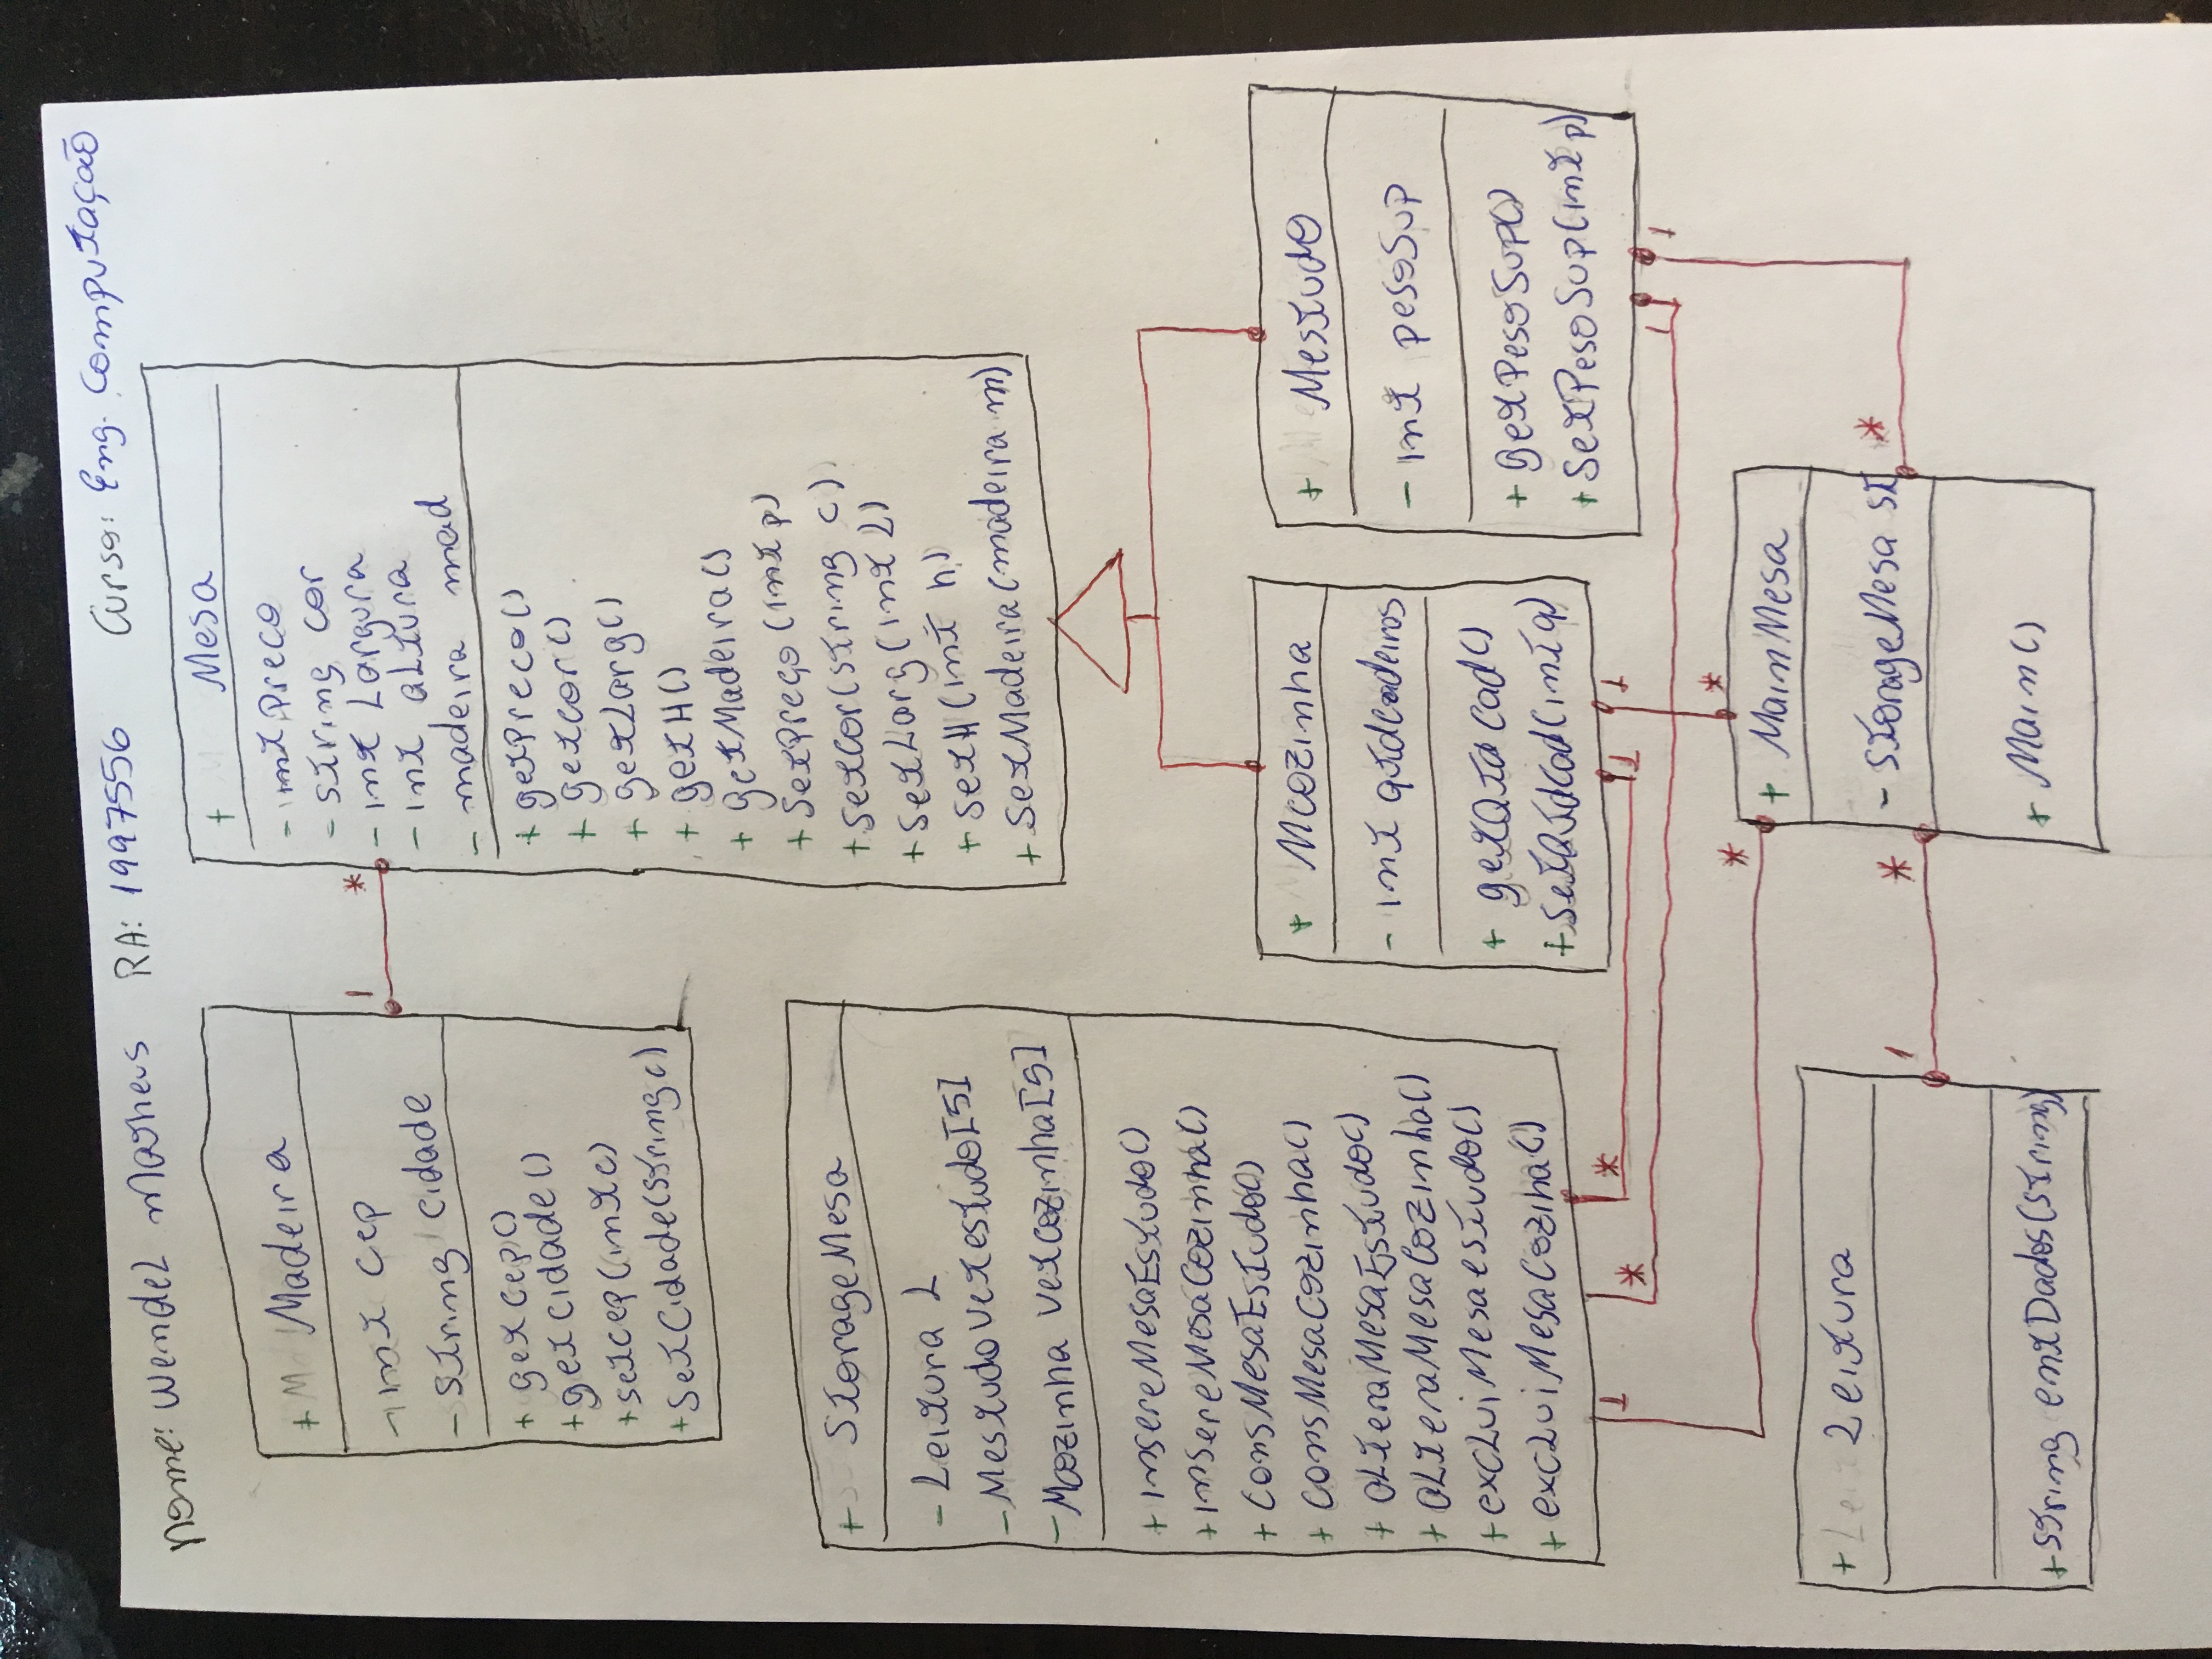 Nome: Wendel Matheus RA: 1997556 Curso: Eng. Computação
+ Madeira
- int cep
- string cidade
+ getcep()
+ getcidade()
+ setcep(int c)
+ SetCidade(string c)
1 *
+ Mesa
- int preco
- string cor
- int Largura
- int altura
- madeira mad
+ getPreco()
+ getcor()
+ getLarg()
+ getH()
+ getMadeira()
+ SetPreço(int p)
+ SetCor(string c)
+ SetLarg(int L)
+ SetH(int h)
+ SetMadeira(madeira m)
+ StorageMesa
- Leitura L
- Mestudo Vetestudo[5]
- Mcozinha Vetcozinha[5]
+ InsereMesaEstudo()
+ InsereMesaCozinha()
+ ConsMesaEstudo()
+ ConsMesaCozinha()
+ alteraMesaEstudo()
+ alteraMesaCozinha()
+ excluiMesaestudo()
+ excluiMesaCozinha()
+ Mcozinha
- int qtdcadeiras
+ getQtdCad()
+ SetQtdCad(int q)
+ Mestudo
- int pesoSup
+ getPesoSup()
+ SetPesoSup(int p)
1 * * 1 1 1 1
* *
+ MainMesa
- StorageMesa st
+ Main()
*
+ Leitura
+ string entDados(string)
1 *